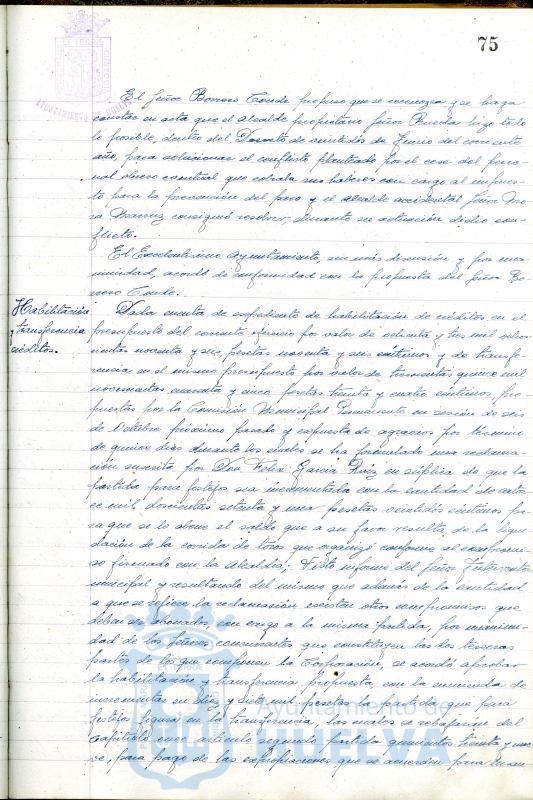 75
El Señor Borrero Conde propuso que se reconozca y se haga
constar en acta que el Alcalde propietario Señor Rueda hizo todo
lo posible, dentro del Decreto de veintidós de Junio del corriente
año, para solucionar el conflicto planteado por el cese del perso-
nal obrero eventual que cobraba sus haberes con cargo al impues-
to para la prevención del paro y el Alcalde accidental Señor Mo-
ra consiguió resolver, durante su actuación dicho con-
flicto.
El Excelentísimo Ayuntamiento, sin más discusión y por una-
nimidad, acordó de conformidad con la propuesta del Señor Bo-
rrero Conde.
Habilitación
y transferencia
créditos.
Dada cuenta de expediente de habilitación de créditos en el
presupuesto del corriente ejercicio por valor de ochenta y tres mil ocho-
cientas noventa y seis pesetas noventa y seis céntimos y de transfe-
rencia en el mismo presupuesto por valor de trescientas quince mil
novecientas cuarenta y cinco pesetas treinta y cuatro céntimos, pro-
puestas por la Comisión Municipal Permanente en sesión de seis
de Octubre próximo pasado y expuesta de agravios por término
de quince días durante los cuales se ha formulado una reclama-
ción suscrita por Don Felix García Ruiz en súplica de que la
partida para festejos sea incrementada con la cantidad de cator-
ce mil doscientas setenta y una pesetas veintidós céntimos pa-
ra que se le abone el saldo que a su favor resulta de la liqui-
dación de la corrida de toros que organizó conforme al compromi-
so firmado con la Alcaldía; Visto informe del Señor Interventor
municipal y resultando del mismo que además de la cantidad
a que se refiere la reclamación existen otros compromisos que
deban ser abonados, con cargo a la misma partida, por unanimi-
dad de los Señores concurrentes que constituyen las dos terceras
partes de los que componen la Corporación, se acordó aprobar
la habilitación y transferencia propuesta con la enmienda de
incrementar en diez y siete mil pesetas la partida que para
festejos figura en la transferencia, las cuales se rebajarán del
Capítulo once artículo segundo partida quinientos treinta y nue-
ve, para pago de las expropiaciones que se acuerden para
Ayuntamiento de
HUELVA